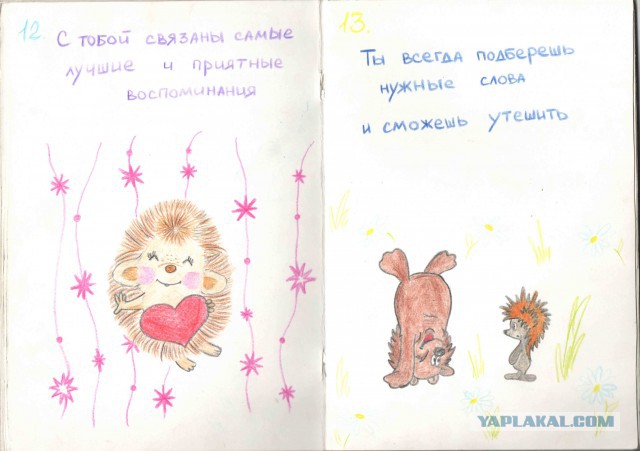 12
С тобой связаны самые
лучшие и приятные
воспоминания
13.
Ты всегда подберешь
нужные слова
и сможешь утешить
YAPLAKAL.COM